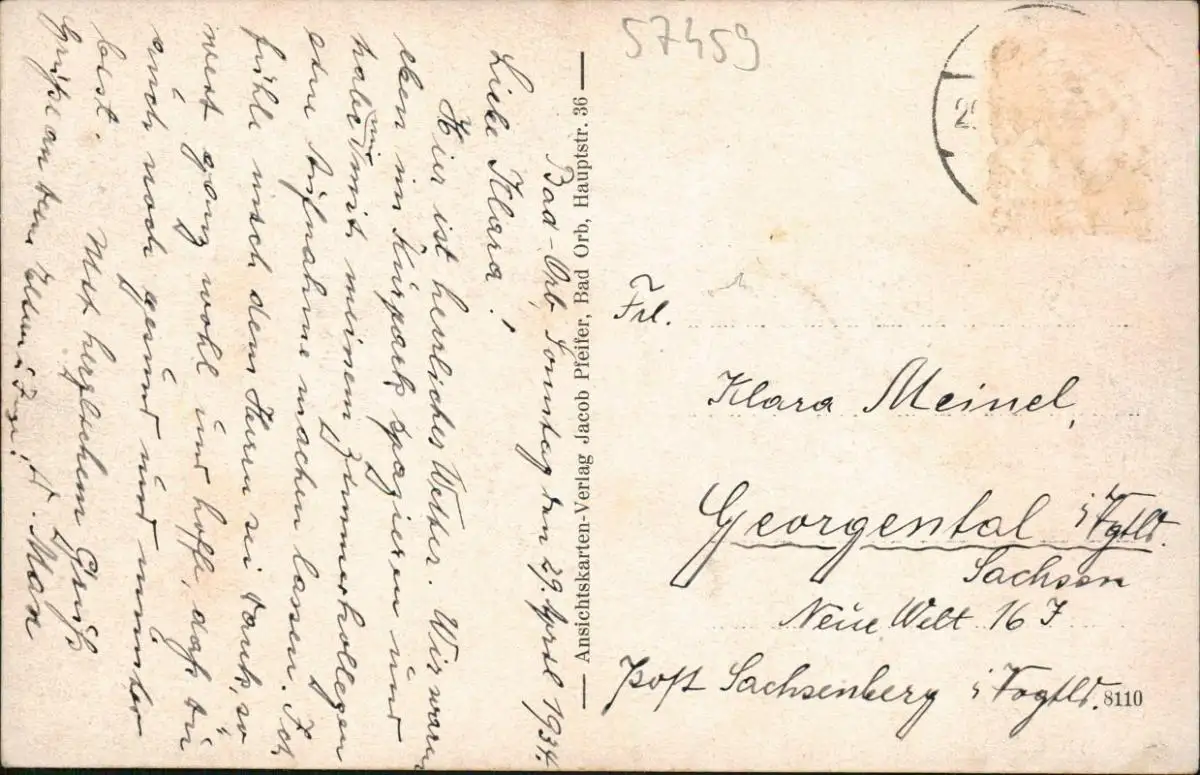 Bad-Orb, Sonntag den 29. April 1934.
Liebe Klara!
Hier ist herrliches Wetter. Wir waren
eben im Kurpark spazieren und
habe mir mit meinem Zimmerkollegen
eine Aufnahme machen lassen. Ich
fühle mich dem Herrn sei Dank, so
weit ganz wohl und hoffe, daß Du
auch noch gesund und munter
bist. Mit herzlichem Gruß
Grüße an Deine Eltern u. Max
Ansichtskarten-Verlag Jacob Pfeifer, Bad Orb, Hauptstr. 36
57459
2
Frl.
Klara Meinel,
Georgental i/Vgtld.
Sachsen
Neue Welt 16 I
Post Sachsenberg i/Vogtld.
8110